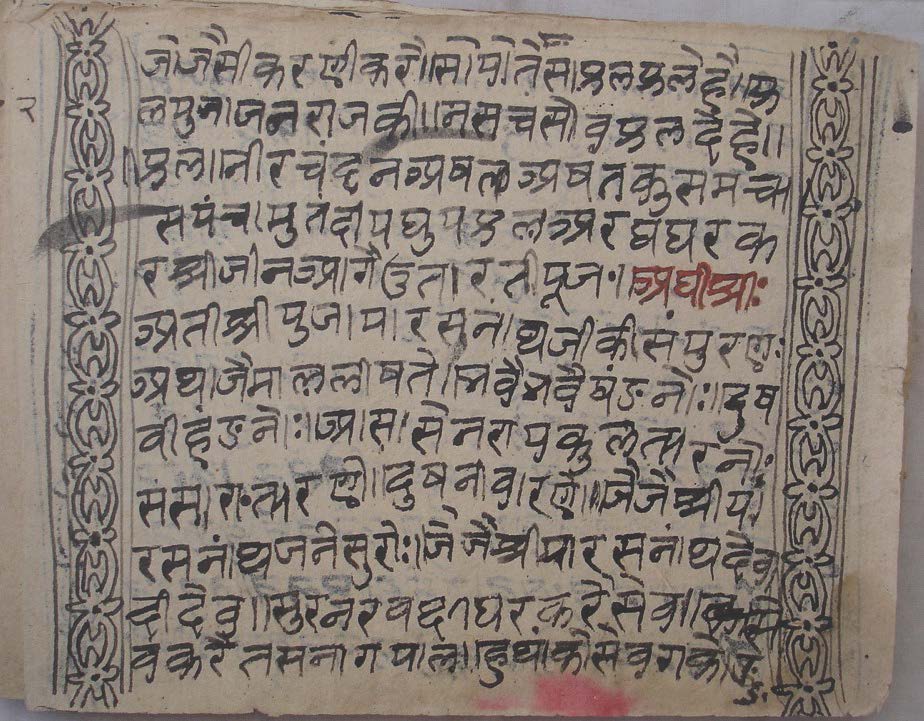 जे जैसी करणी करै॥ सो पो तैसा फल फल हे है॥ फ
ल पुजा जनराज की॥ नसचसौ व फल दे है॥
॥फल॥ नीर चंदन अषल अषत कुसम चा
स पंचामुत दीप घुप फल अरघ घर क
र श्री जीन आगै उतारती पूजः॥ अर्घी श्रीः
अती श्री पुजा पारसनाथजी की संपुरणः
अथ जैमाल लीषते॥ भवै भवै षंडनोः॥ दुष
वीहंडनोः॥ आसासेनराय कुल त्यारनोः
संसारा त्यारणी॥ दुषनीवारणो॥ जै जै श्री पा
रसनांथ जनेसुरोः॥ जै जै श्री पारसनांथ देव
दी देव॥ सुर नर वदत घर करै सेव॥
व करै तस नाग पाल॥ हु थांको सेवग
२